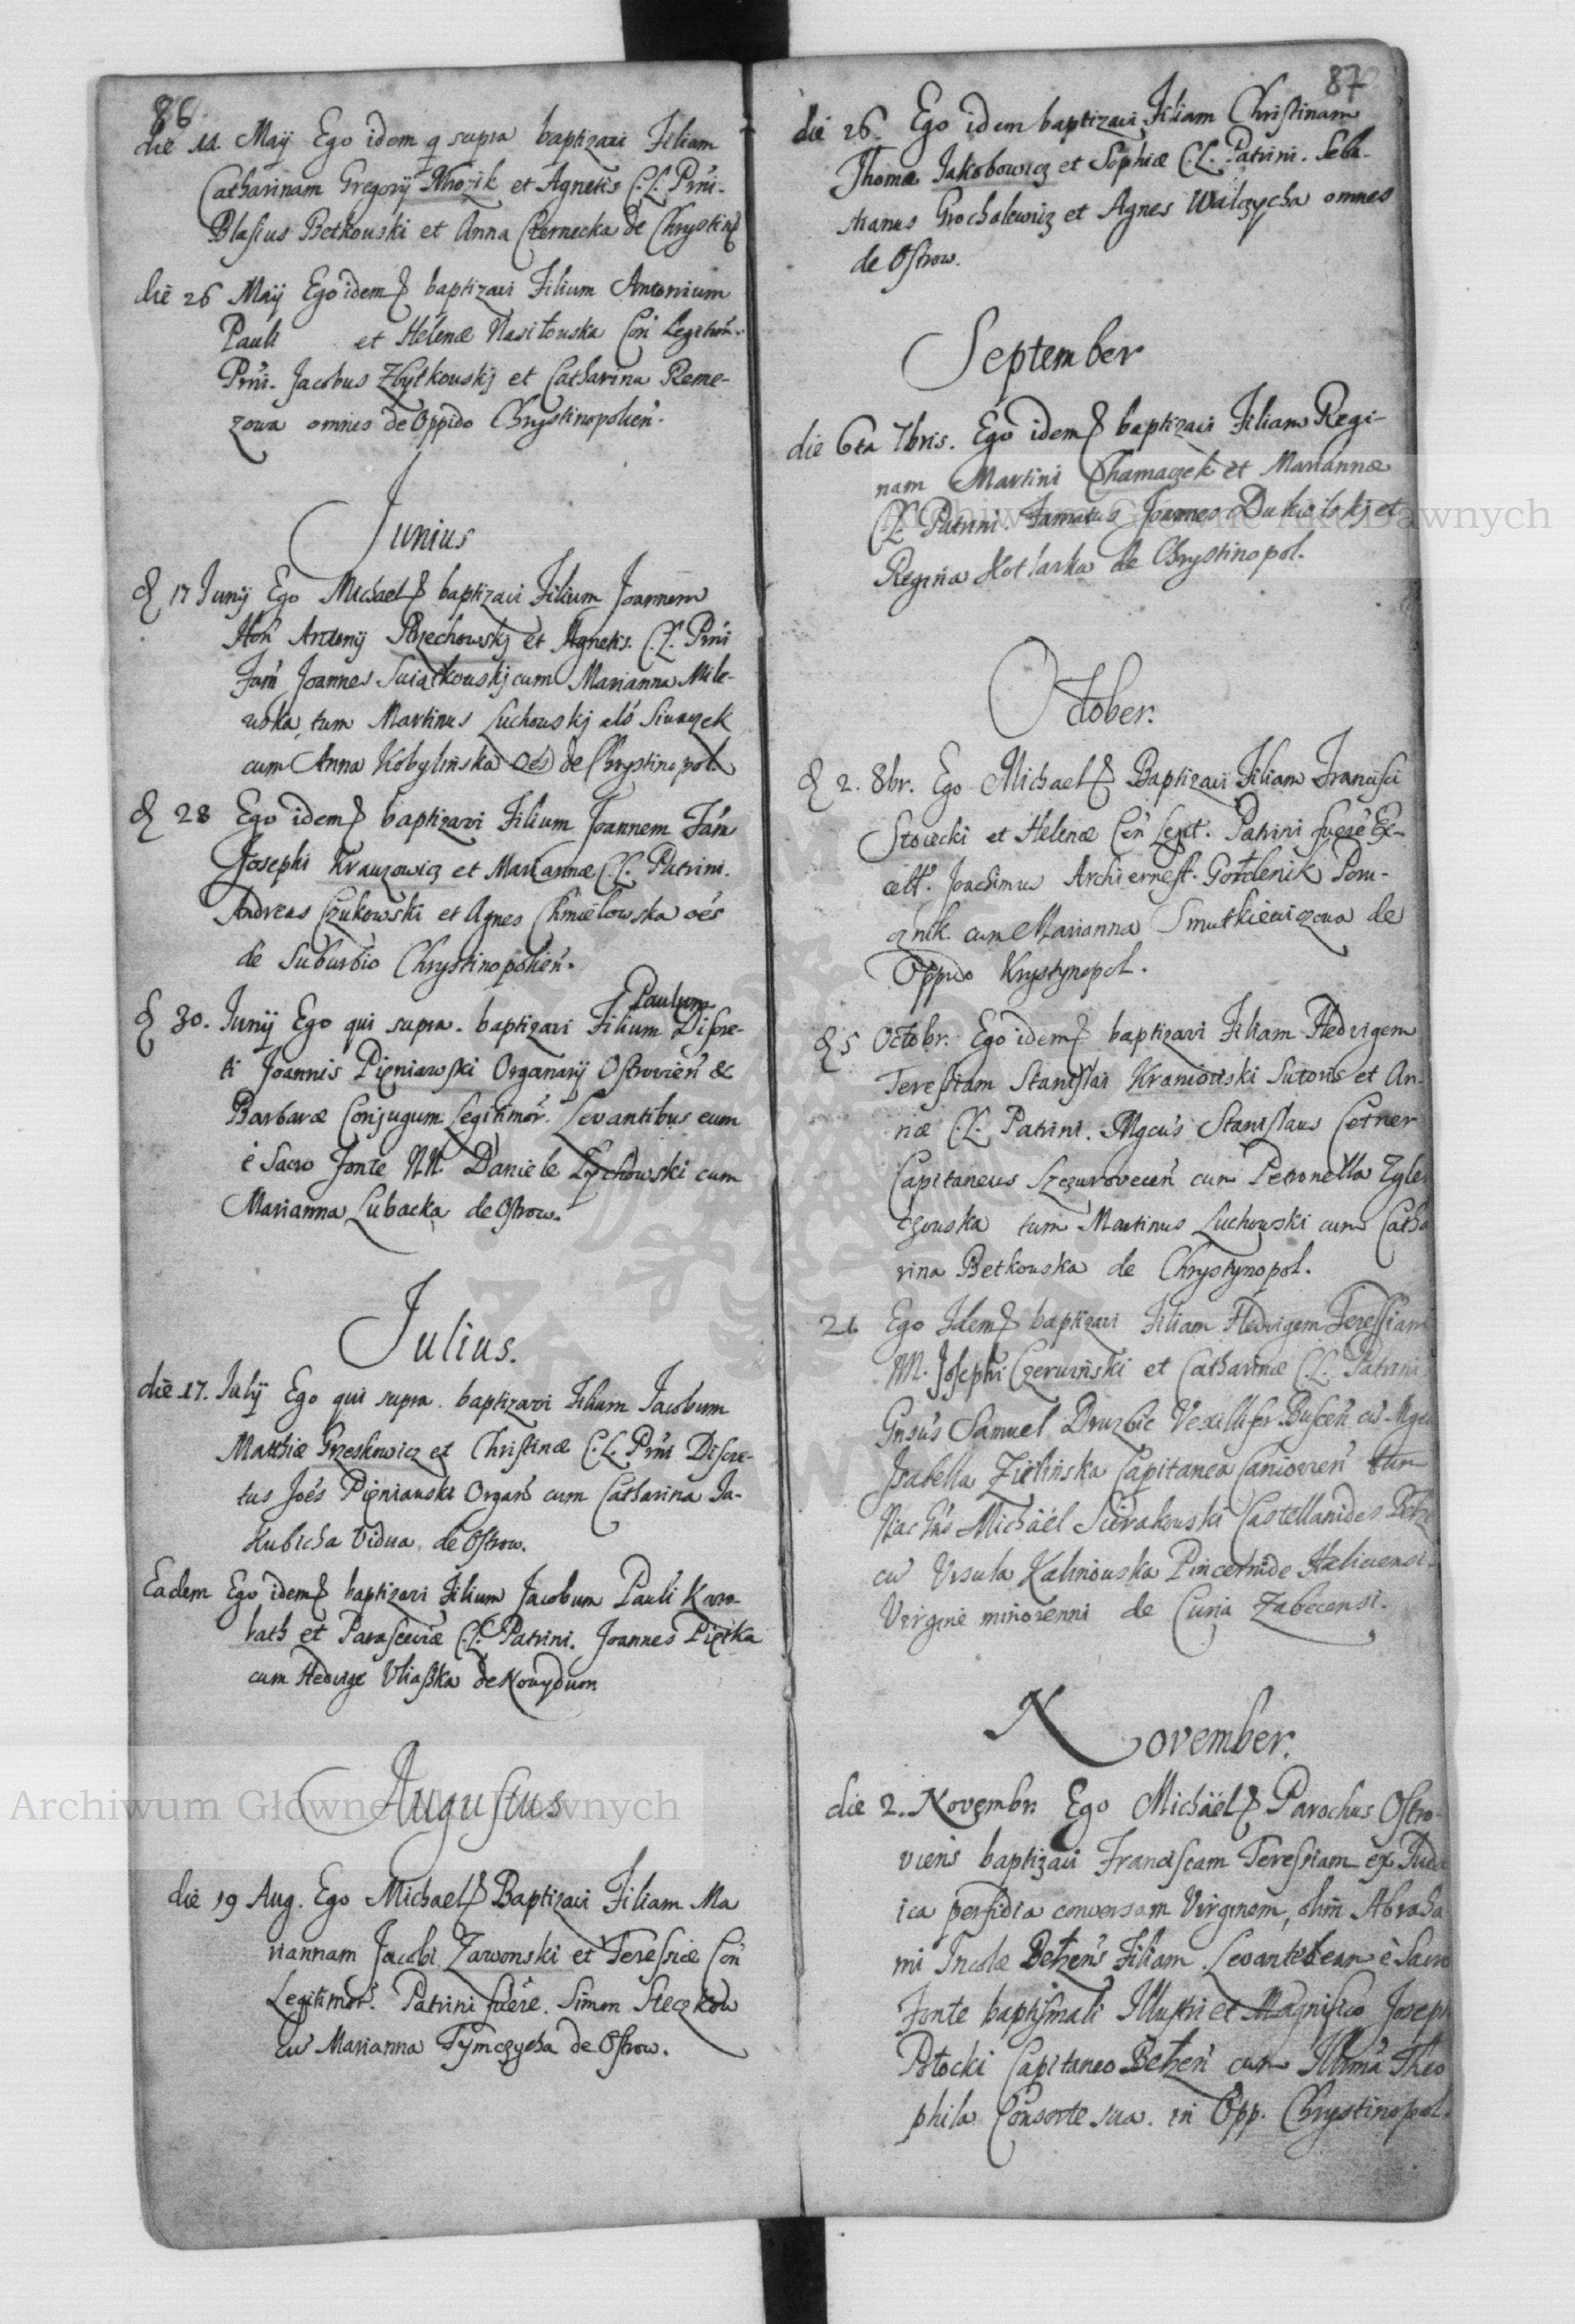 86
die 11. Maij Ego idem q supra baptizavi Filiam
Catharinam Gregorij Mrozik et Agnetis C.L. Prni.
Blasius Betkowski et Anna Czernecka de Chrystinp
die 26 Maij Ego idem baptizavi Filium Antonium
Pauli et Helenæ Nasiłowska Con Legitim.
Prni. Jacobus Zbytkowskj et Catharina Reme-
zowa omnes de Oppido Chrystinopolień.
Junius
d 17 Junij Ego Michael baptizavi Filium Joannem
Hoń Antonij Rzechowskj et Agnetis. C.L. Prni
Fam Joannes Swiątkowskj cum Marianna Mile-
wska, tum Martinus Luchowskj als Siwaczek
cum Anna Kobylińska oēs de Chrystinopol.
d 28 Ego idem baptizavi Filium Joannem Fam
Josephi Krauzowicz et Mariannæ C.L. Patrini.
Andreas Czukowski et Agnes Chmielowska oēs
de Suburbio Chrystinopolień.
Paulum
d 30. Junij Ego qui supra. baptizavi Filium Discre-
ti Joannis Pięniawski Organarij Ostrovień &
Barbaræ Conjugum Legitimor. Levantibus eum
è Sacro fonte NN. Daniele Łychowski cum
Marianna Lubacka de Ostrow.
Julius.
die 17. Julij Ego qui supra. baptizavi Filium Jacobum
Matthiæ Grzeskowicz et Christinæ C.L. Prni Discre-
tus Joēs Pięniawski Organr cum Catharina Ja-
kubicha Vidua. de Ostrow.
Eadem Ego idem baptizavi Filium Jacobum Pauli Kar-
bath et Parasceviæ C.L. Patrini. Joannes Piętka
cum Hedvige Uliaßka de Nowydwor.
Augustus
die 19 Aug. Ego Michael Baptizavi Filiam Ma
riannam Jacobi Zawonski et Teressiæ Con
Legitimor. Patrini fuere. Simon Steczkow
cu Marianna Tymczycha de Ostrow.
87
die 26. Ego idem baptizavi Filiam Christinam
Thomæ Jakobowicz et Sophiæ C.L. Patrini. Seba-
stianus Grochalewicz et Agnes Walczycha omnes
de Ostrow.
September
die 6ta 7bris. Ego idem baptizavi Filiam Regi-
nam Martini Chamaczek et Mariannæ
C.L. Patrini. Famatus Joannes Dukielskj et
Regina Kotlarka de Chrystinopol.
October.
d 2. 8br. Ego Michael Baptizavi Filiam Francisci
Stoiecki et Helenæ Con Legit. Patrini fuere Ex-
cellt. Joachimus Archiernest. Gordenik Poru-
cznik. cum Marianna Smutkiewiczowa de
Oppido Krystynopol.
d 5 Octobr. Ego idem baptizavi Filiam Hedvigem
Teressiam Stanislai Kraniowski Sutoris et An-
næ C.L. Patrini. Mgcus Stanislaus Cetner
Capitaneus Szczurovecen cum Petronella Zgle
czowska tum Martinus Luchowski cum Catha
rina Betkowska de Chrystynopol.
21 Ego Idem baptizavi Filiam Hedvigem Teressiam
M. Josephi Czerwiński et Catharinæ C.L. Patrini
Gnsus Samuel Druzbic Vexillifer Buscen cu Mgca
Isabella Zielińska Capitanea Caniovien tum
Michäel Sierakowski Castellanides Betz
cu Ursula Kalinowska Pincernide Haliciensi
Virgine minorenni de Curia Zabecensi.
November.
die 2. Novembr. Ego Michäel Parochus Ostro-
viens baptizavi Franciscam Teressiam ex Juda
ica perfidia conversam Virginem, olim Abraha
mi Incolæ Bełzens Filiam. Levante eam è Sacro
Fonte baptismali Illustri et Magnifico Joseph
Potocki Capitaneo Bełzen cum Illma Theo
phila Consorte sua. in Opp. Chrystinopol.
Archiwum Główne Akt Dawnych
Archiwum Główne Akt Dawnych